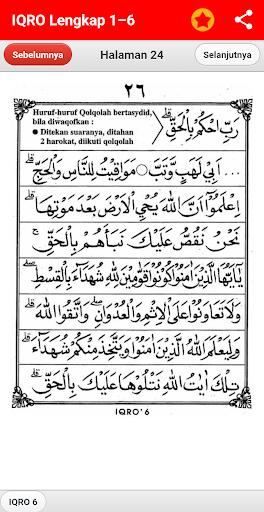 IQRO Lengkap 1–6
Sebelumnya
Halaman 24
Selanjutnya
٢٦
Huruf-huruf Qolqolah bertasydid,
bila diwaqofkan :
● Ditekan suaranya, ditahan
2 harokat, diikuti qolqolah
رَبِّ احْكُمْ بِالْحَقِّ
... اَبِيْ لَهَبٍ وَّتَبَّ ○ مَوَاقِيْتُ لِلنَّاسِ وَالْحَجِّ
اِعْلَمُوْا اَنَّ اللهَ يُحْيِ الْاَرْضَ بَعْدَ مَوْتِهَا
نَحْنُ نَقُصُّ عَلَيْكَ نَبَأَهُمْ بِالْحَقِّ
يٰاَيُّهَا الَّذِيْنَ اٰمَنُوْا كُوْنُوْا قَوَّامِيْنَ لِلّٰهِ شُهَدَاءَ بِالْقِسْطِ
وَلَا تَعَاوَنُوْا عَلَى الْاِثْمِ وَالْعُدْوَانِ وَاتَّقُوا اللهَ
وَلِيَعْلَمَ اللهُ الَّذِيْنَ اٰمَنُوْا وَيَتَّخِذَ مِنْكُمْ شُهَدَاءَ
تِلْكَ اٰيٰتُ اللهِ نَتْلُوْهَا عَلَيْكَ بِالْحَقِّ
IQRO' 6
IQRO 6